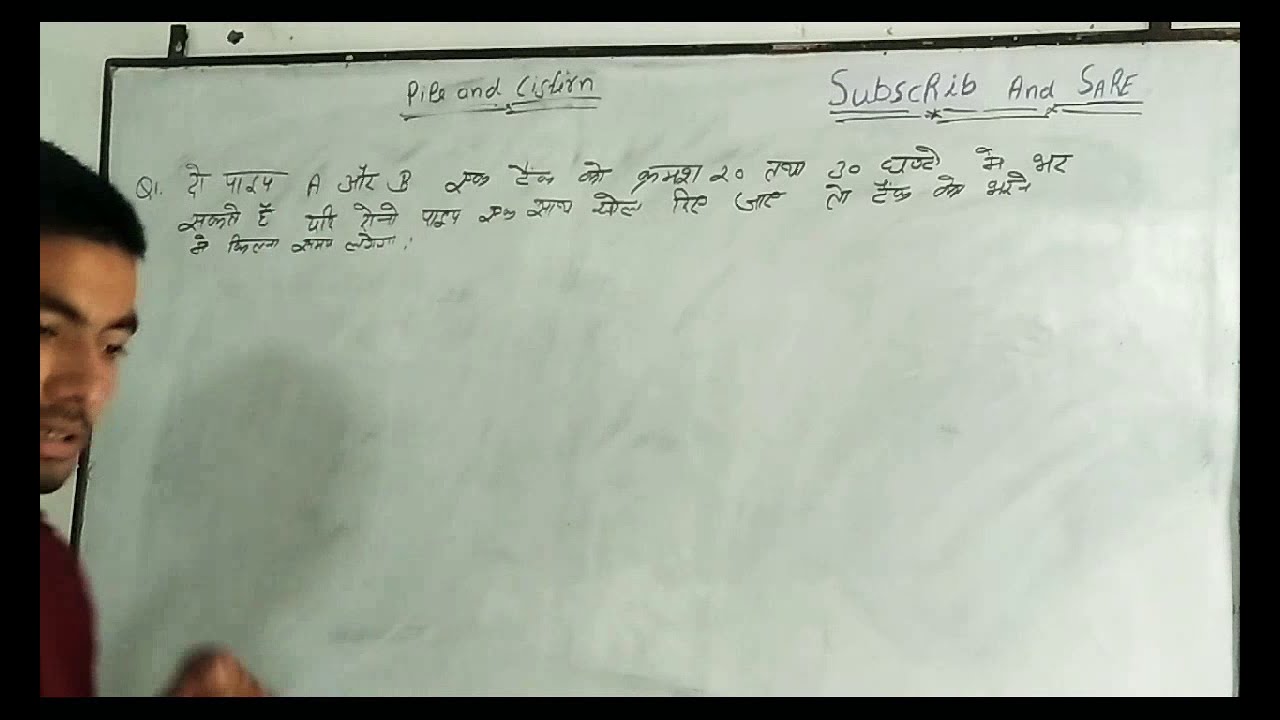 Pipe and Cistirn
SubscRib And SARE
Q1. दो पाइप A और B एक टैंक को क्रमश 20 तथा 30 घण्टे मे भर
सकते हैं यदि दोनो पाइप एक साथ खोल दिए जाए तो टैंक को भरने
मे कितना समय लगेगा।